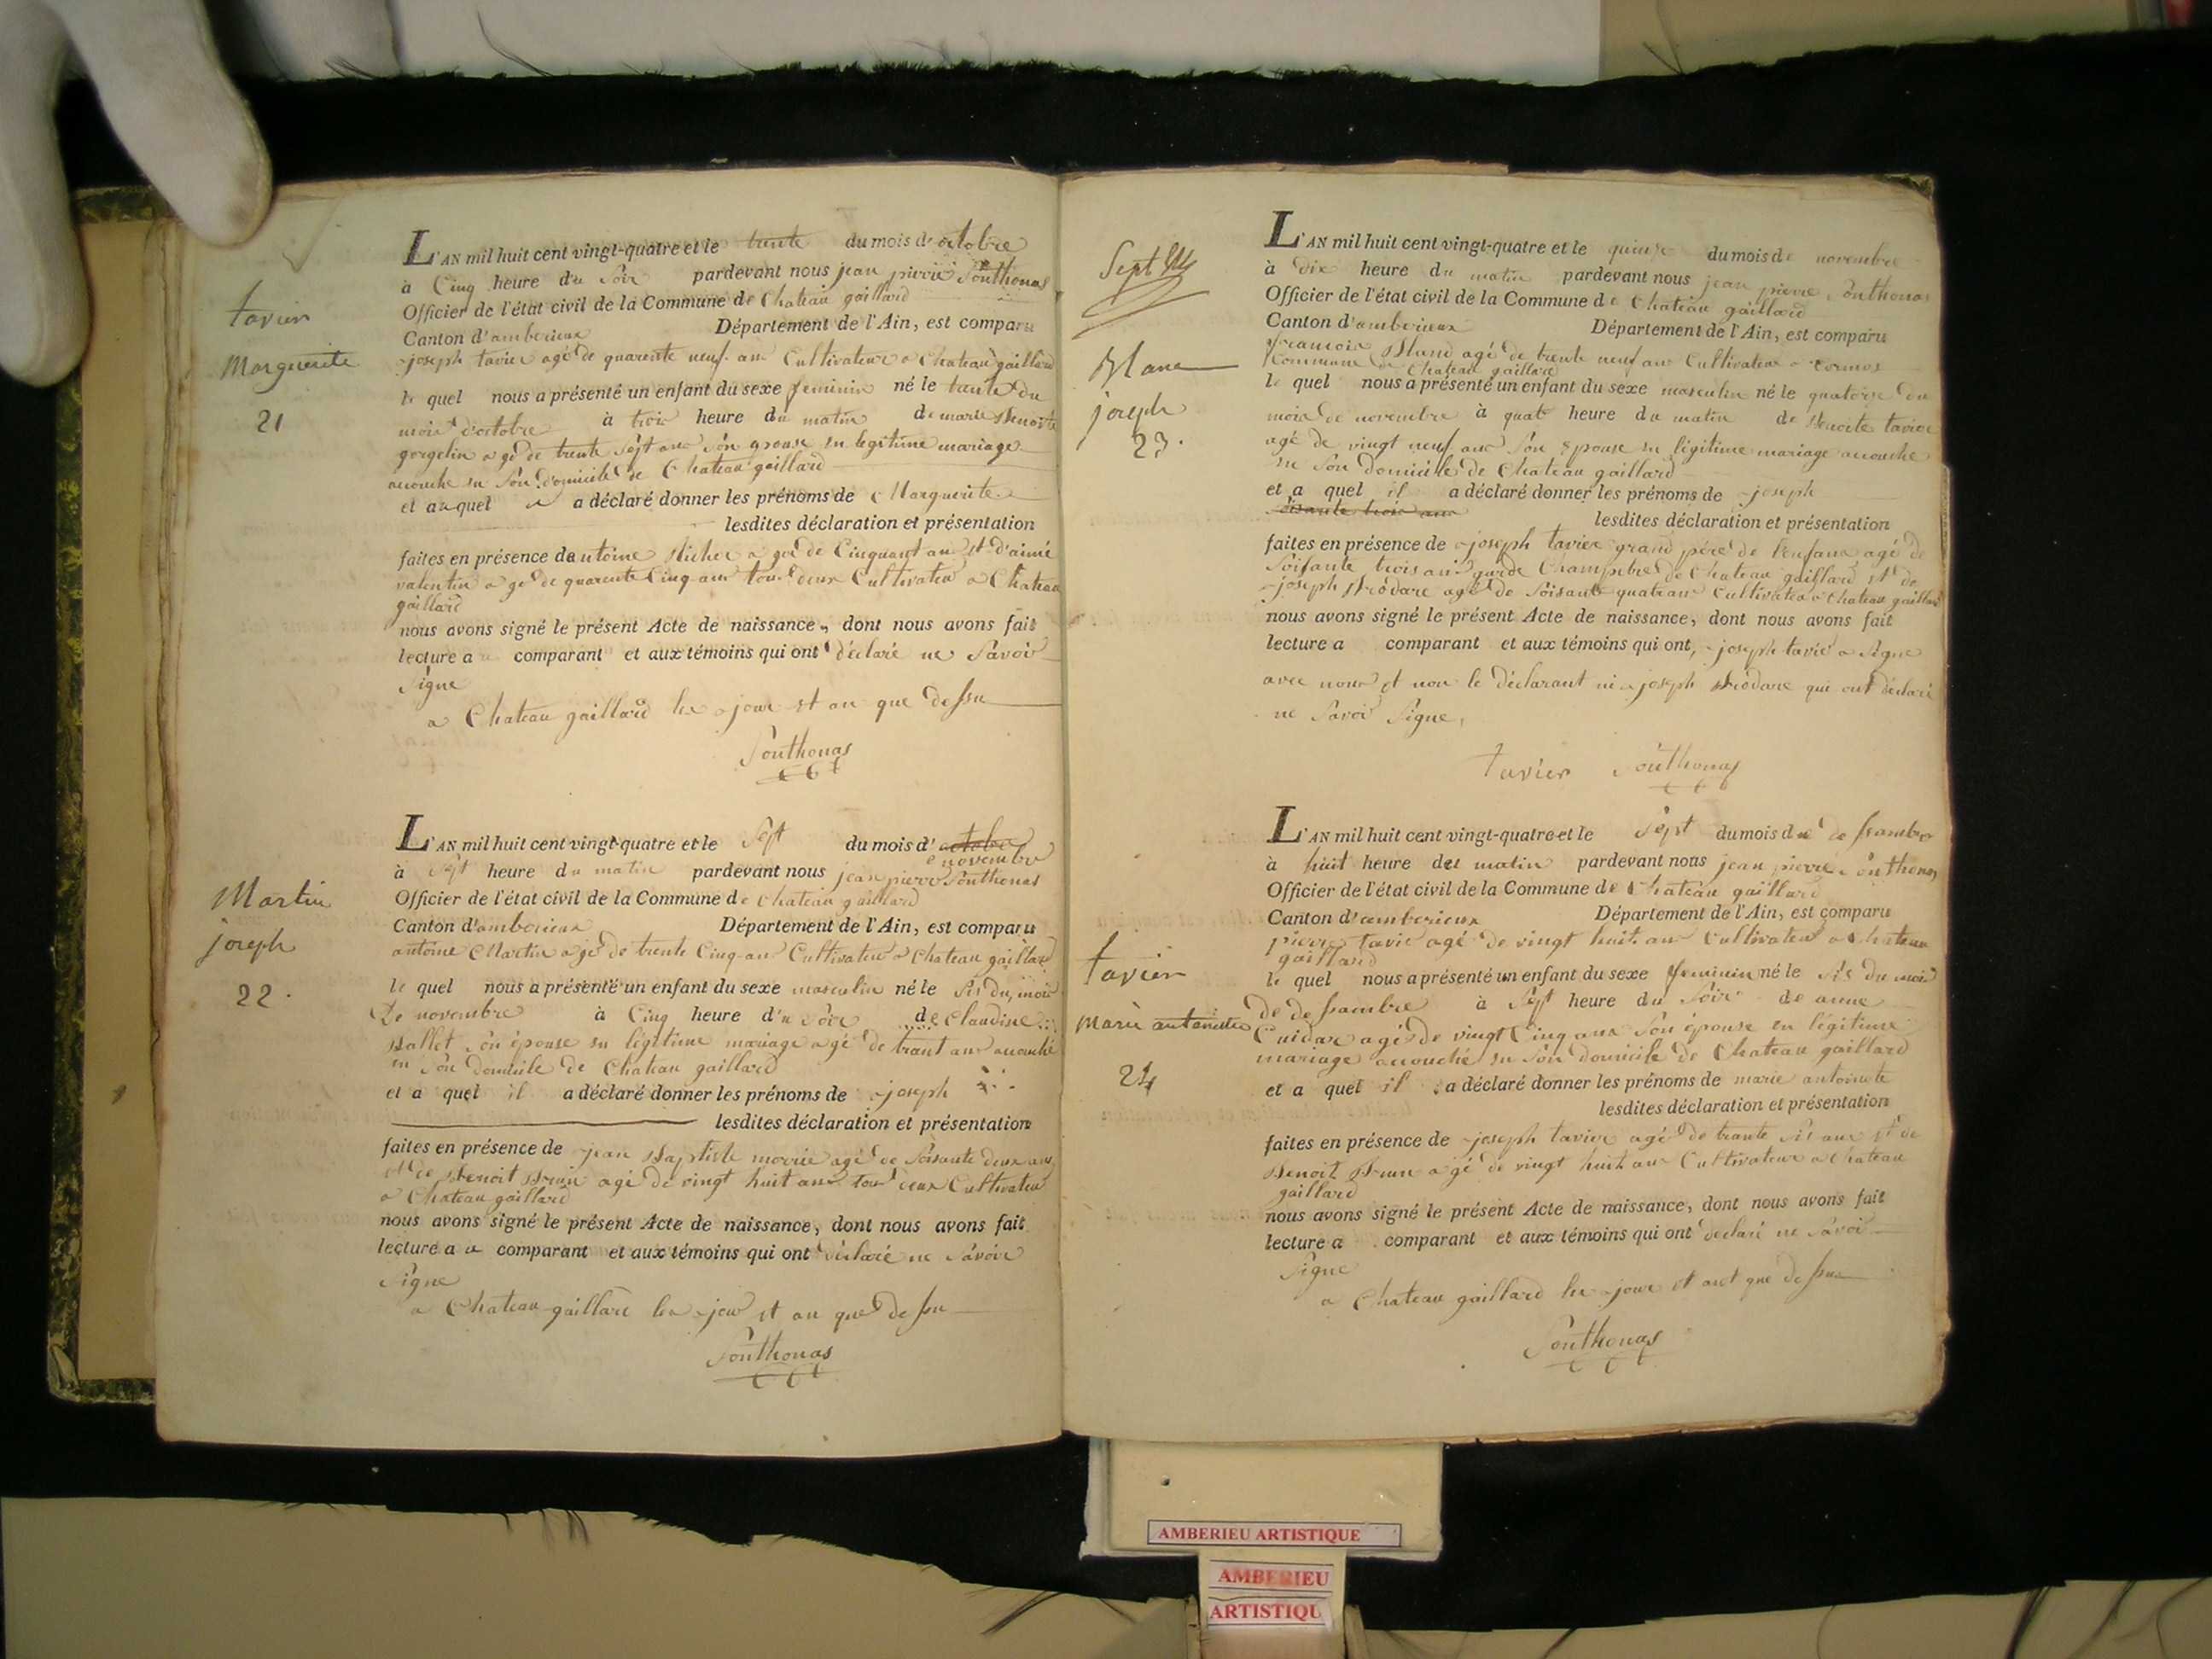 tavier
Marguerite
21
L'AN mil huit cent vingt-quatre et le trente du mois d'octobre
à Cinq heure du soir pardevant nous jean pierre Ponthonas
Officier de l'état civil de la Commune de Chateau gaillard
Canton d'amberieux Département de l'Ain, est comparu
joseph tavier agé de quarente neuf ans Cultivateur a Chateau gaillard
le quel nous a présenté un enfant du sexe feminin né le tante du
mois d'octobre à trois heure du matin de marie Benoite
gorgelin agé de trente Sept ans Son epouse en legitime mariage
acouche en Son domicile de Chateau gaillard
et auquel il a déclaré donner les prénoms de Marguerite
lesdites déclaration et présentation
faites en présence dantoine agé de Cinquant ans et d'aimé
valentin agé de quarente Cinq ans tous deux Cultivateu a Chateau
gaillard
nous avons signé le présent Acte de naissance, dont nous avons fait
lecture au comparant et aux témoins qui ont déclaré ne Savoir
Signe
a Chateau gaillard les jour et an que dessu
Ponthonas
Martin
joseph
22.
L'AN mil huit cent vingt-quatre et le Sept du mois d'octobre
e novembre
à Sept heure du matin pardevant nous jean pierre Ponthonas
Officier de l'état civil de la Commune de Chateau gaillard
Canton d'amberieux Département de l'Ain, est comparu
antoine Martin agé de trente Cinq ans Cultivateu a Chateau gaillard
le quel nous a présenté un enfant du sexe masculin né le Sis du mois
De novembre à Cinq heure du Soir de Claudine
Ballet Son épouse en légitime mariage agé de trant ans acouché
en Son domicile de Chateau gaillard
et a quel il a déclaré donner les prénoms de joseph
lesdites déclaration et présentation
faites en présence de jean Baptiste agé de Soisante deux ans
et de Benoit Brun agé de vingt huit ans tous deux Cultivateu
a Chateau gaillard
nous avons signé le présent Acte de naissance, dont nous avons fait
lecture a u comparant et aux témoins qui ont déclaré ne Savoir
Signe
a Chateau gaillard les jour et an que dessu
Ponthonas
Sept
Blanc
joseph
23.
L'AN mil huit cent vingt-quatre et le quinze du mois de novembre
à dix heure du matin pardevant nous jean pierre Ponthonas
Officier de l'état civil de la Commune de Chateau gaillard
Canton d'amberieux Département de l'Ain, est comparu
francois Blanc agé de trente neuf ans Cultivateur a Cormos
Commune de Chateau gaillard
le quel nous a présenté un enfant du sexe masculin né le quatorse du
mois de novembre à quatr heure du matin de Benoite tavier
agé de vingt neuf ans Son Epouse en légitime mariage acouché
en Son domicile de Chateau gaillard
et a quel il a déclaré donner les prénoms de joseph
Soisante trois ans lesdites déclaration et présentation
faites en présence de joseph tavier grand père de l'enfans agé de
Soisante trois ans garde Champetre de Chateau gaillard et de
joseph Brodare agé de Soisante quatrans Cultivateu a Chateau gaillard
nous avons signé le présent Acte de naissance, dont nous avons fait
lecture a comparant et aux témoins qui ont, joseph tavié a Signe
avec nous et non le déclarant ni joseph Brodare qui ont déclaré
ne Savoi Signe,
tavier Ponthonas
tavier
Marie antoinette
24
L'AN mil huit cent vingt-quatre et le Sept du mois de de ssambre
à huit heure du matin pardevant nous jean pierre Ponthonas
Officier de l'état civil de la Commune de Chateau gaillard
Canton d'amberieux Département de l'Ain, est comparu
pierre tavié agé de vingt huit ans Cultivateu a Chateau
gaillard
le quel nous a présenté un enfant du sexe feminin né le Sis du mois
de de ssambre à Sept heure du Soir de anne
Cuidar agé de vingt Cinq ans Son épouse en légitime
mariage acouché en Son domicile de Chateau gaillard
et a quel il a déclaré donner les prénoms de marie antoinete
lesdites déclaration et présentation
faites en présence de joseph tavier agé de trante Sis ans et de
Benoit Brun agé de vingt huit ans Cultivateur a Chateau
gaillard
nous avons signé le présent Acte de naissance, dont nous avons fait
lecture a comparant et aux témoins qui ont declaré ne Savoi
Signe
a Chateau gaillard les jour et ant que dessu
Ponthonas
AMBERIEU ARTISTIQUE
AMBERIEU
ARTISTIQU